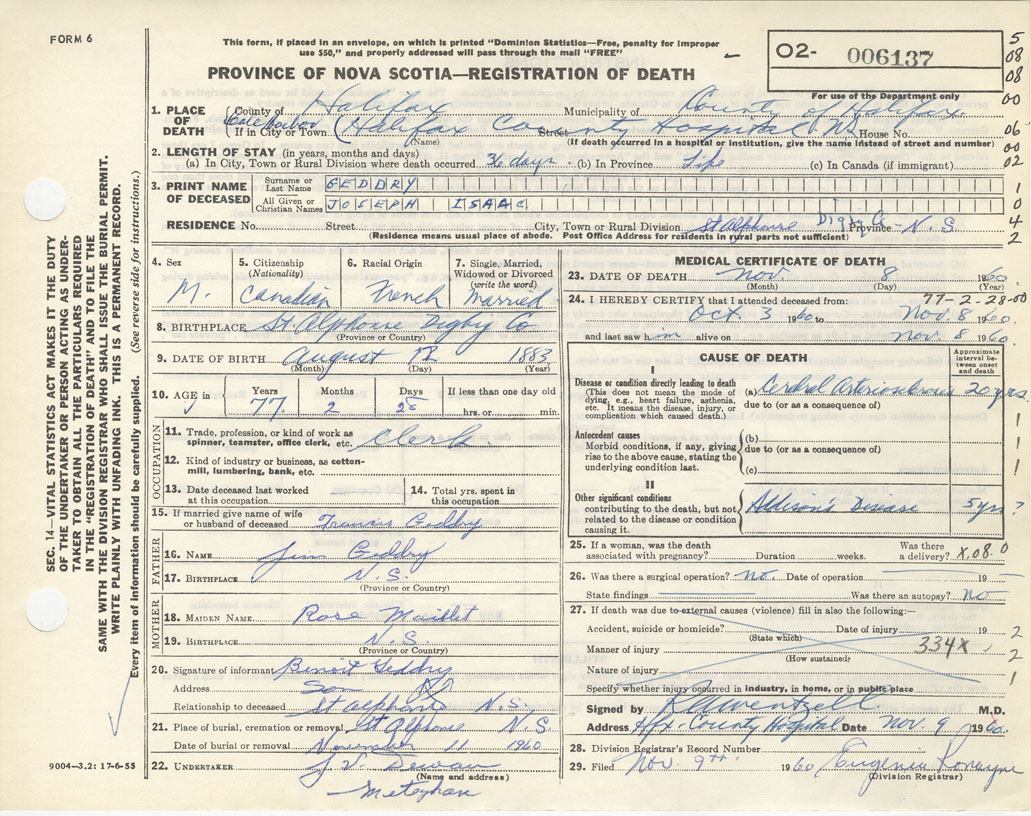 FORM 6
This form, if placed in an envelope, on which is printed "Dominion Statistics—Free, penalty for improper
use $50," and properly addressed will pass through the mail "FREE"
PROVINCE OF NOVA SCOTIA—REGISTRATION OF DEATH
O2- 006137
For use of the Department only
5
08
08
00
06
00
02
1
0
4
2
SEC. 14—VITAL STATISTICS ACT MAKES IT THE DUTY
OF THE UNDERTAKER OR PERSON ACTING AS UNDER-
TAKER TO OBTAIN ALL THE PARTICULARS REQUIRED
IN THE "REGISTRATION OF DEATH" AND TO FILE THE
SAME WITH THE DIVISION REGISTRAR WHO SHALL ISSUE THE BURIAL PERMIT.
WRITE PLAINLY WITH UNFADING INK. THIS IS A PERMANENT RECORD.
Every item of information should be carefully supplied. (See reverse side for instructions.)
1. PLACE OF DEATH
County of Halifax Municipality of County of Halifax
If in City or Town Halifax County Hospital Street House No.
(Name) (If death occurred in a hospital or institution, give the name instead of street and number)
2. LENGTH OF STAY (in years, months and days)
(a) In City, Town or Rural Division where death occurred 36 days (b) In Province Life (c) In Canada (if immigrant)
3. PRINT NAME OF DECEASED
Surname or Last Name GEDDRY
All Given or Christian Names JOSEPH ISAAC
RESIDENCE No. Street City, Town or Rural Division St Alphonse Digby Co Province N.S.
(Residence means usual place of abode. Post Office Address for residents in rural parts not sufficient)
4. Sex M.
5. Citizenship (Nationality) Canadian
6. Racial Origin French
7. Single, Married, Widowed or Divorced (write the word) Married
8. BIRTHPLACE St. Alphonse Digby Co
(Province or Country)
9. DATE OF BIRTH August 12 1883
(Month) (Day) (Year)
10. AGE in Years 77 Months 2 Days 28 If less than one day old hrs. or min.
OCCUPATION
11. Trade, profession, or kind of work as spinner, teamster, office clerk, etc. Clerk
12. Kind of industry or business, as cotton-mill, lumbering, bank, etc.
13. Date deceased last worked at this occupation
14. Total yrs. spent in this occupation
15. If married give name of wife or husband of deceased Francis Geddry
FATHER
16. NAME Jim Geddry
17. BIRTHPLACE N.S.
(Province or Country)
MOTHER
18. MAIDEN NAME Rose Maillet
19. BIRTHPLACE N.S.
(Province or Country)
20. Signature of informant Benoit Geddry
Address Son
Relationship to deceased St alphonse N.S.
21. Place of burial, cremation or removal St Alphonse N.S.
Date of burial or removal November 11 1960
22. UNDERTAKER
(Name and address)
Meteghan
9004—3.2: 17-6-55
MEDICAL CERTIFICATE OF DEATH
23. DATE OF DEATH Nov. 8 1960
(Month) (Day) (Year)
77-2-28-00
24. I HEREBY CERTIFY that I attended deceased from:
Oct 3 1960 to Nov. 8 1960.
and last saw him alive on Nov. 8 1960.
CAUSE OF DEATH
Approximate interval between onset and death
I
Disease or condition directly leading to death
(This does not mean the mode of dying, e.g., heart failure, asthenia, etc. It means the disease, injury, or complication which caused death.)
(a) Cerebral Arteriosclerosis 20 yrs.
due to (or as a consequence of)
Antecedent causes
Morbid conditions, if any, giving rise to the above cause, stating the underlying condition last.
(b)
due to (or as a consequence of)
(c)
II
Other significant conditions
contributing to the death, but not related to the disease or condition causing it.
Addison's Disease 5 yrs ?
25. If a woman, was the death associated with pregnancy? Duration weeks. Was there a delivery? X,08.0
26. Was there a surgical operation? No. Date of operation 19
State findings Was there an autopsy? No
27. If death was due to external causes (violence) fill in also the following:—
Accident, suicide or homicide? Date of injury 19
(State which)
Manner of injury 334X
(How sustained)
Nature of injury
Specify whether injury occurred in industry, in home, or in public place
2
2
1
Signed by M.D.
Address Hfx. County Hospital Date Nov. 9 1960.
28. Division Registrar's Record Number
29. Filed Nov. 9th 1960
(Division Registrar)